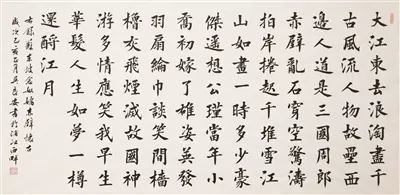 大江東去浪淘盡千
古風流人物故壘西
邊人道是三國周郎
赤壁亂石穿空驚濤
拍岸捲起千堆雪江
山如畫一時多少豪
傑遥想公瑾當年小
喬初嫁了雄姿英發
羽扇綸巾談笑間檣
櫓灰飛煙滅故國神
遊多情應笑我早生
華髮人生如夢一樽
還酹江月
右錄蘇東坡念奴嬌赤壁懷古
歲次己亥月書於浦江西畔